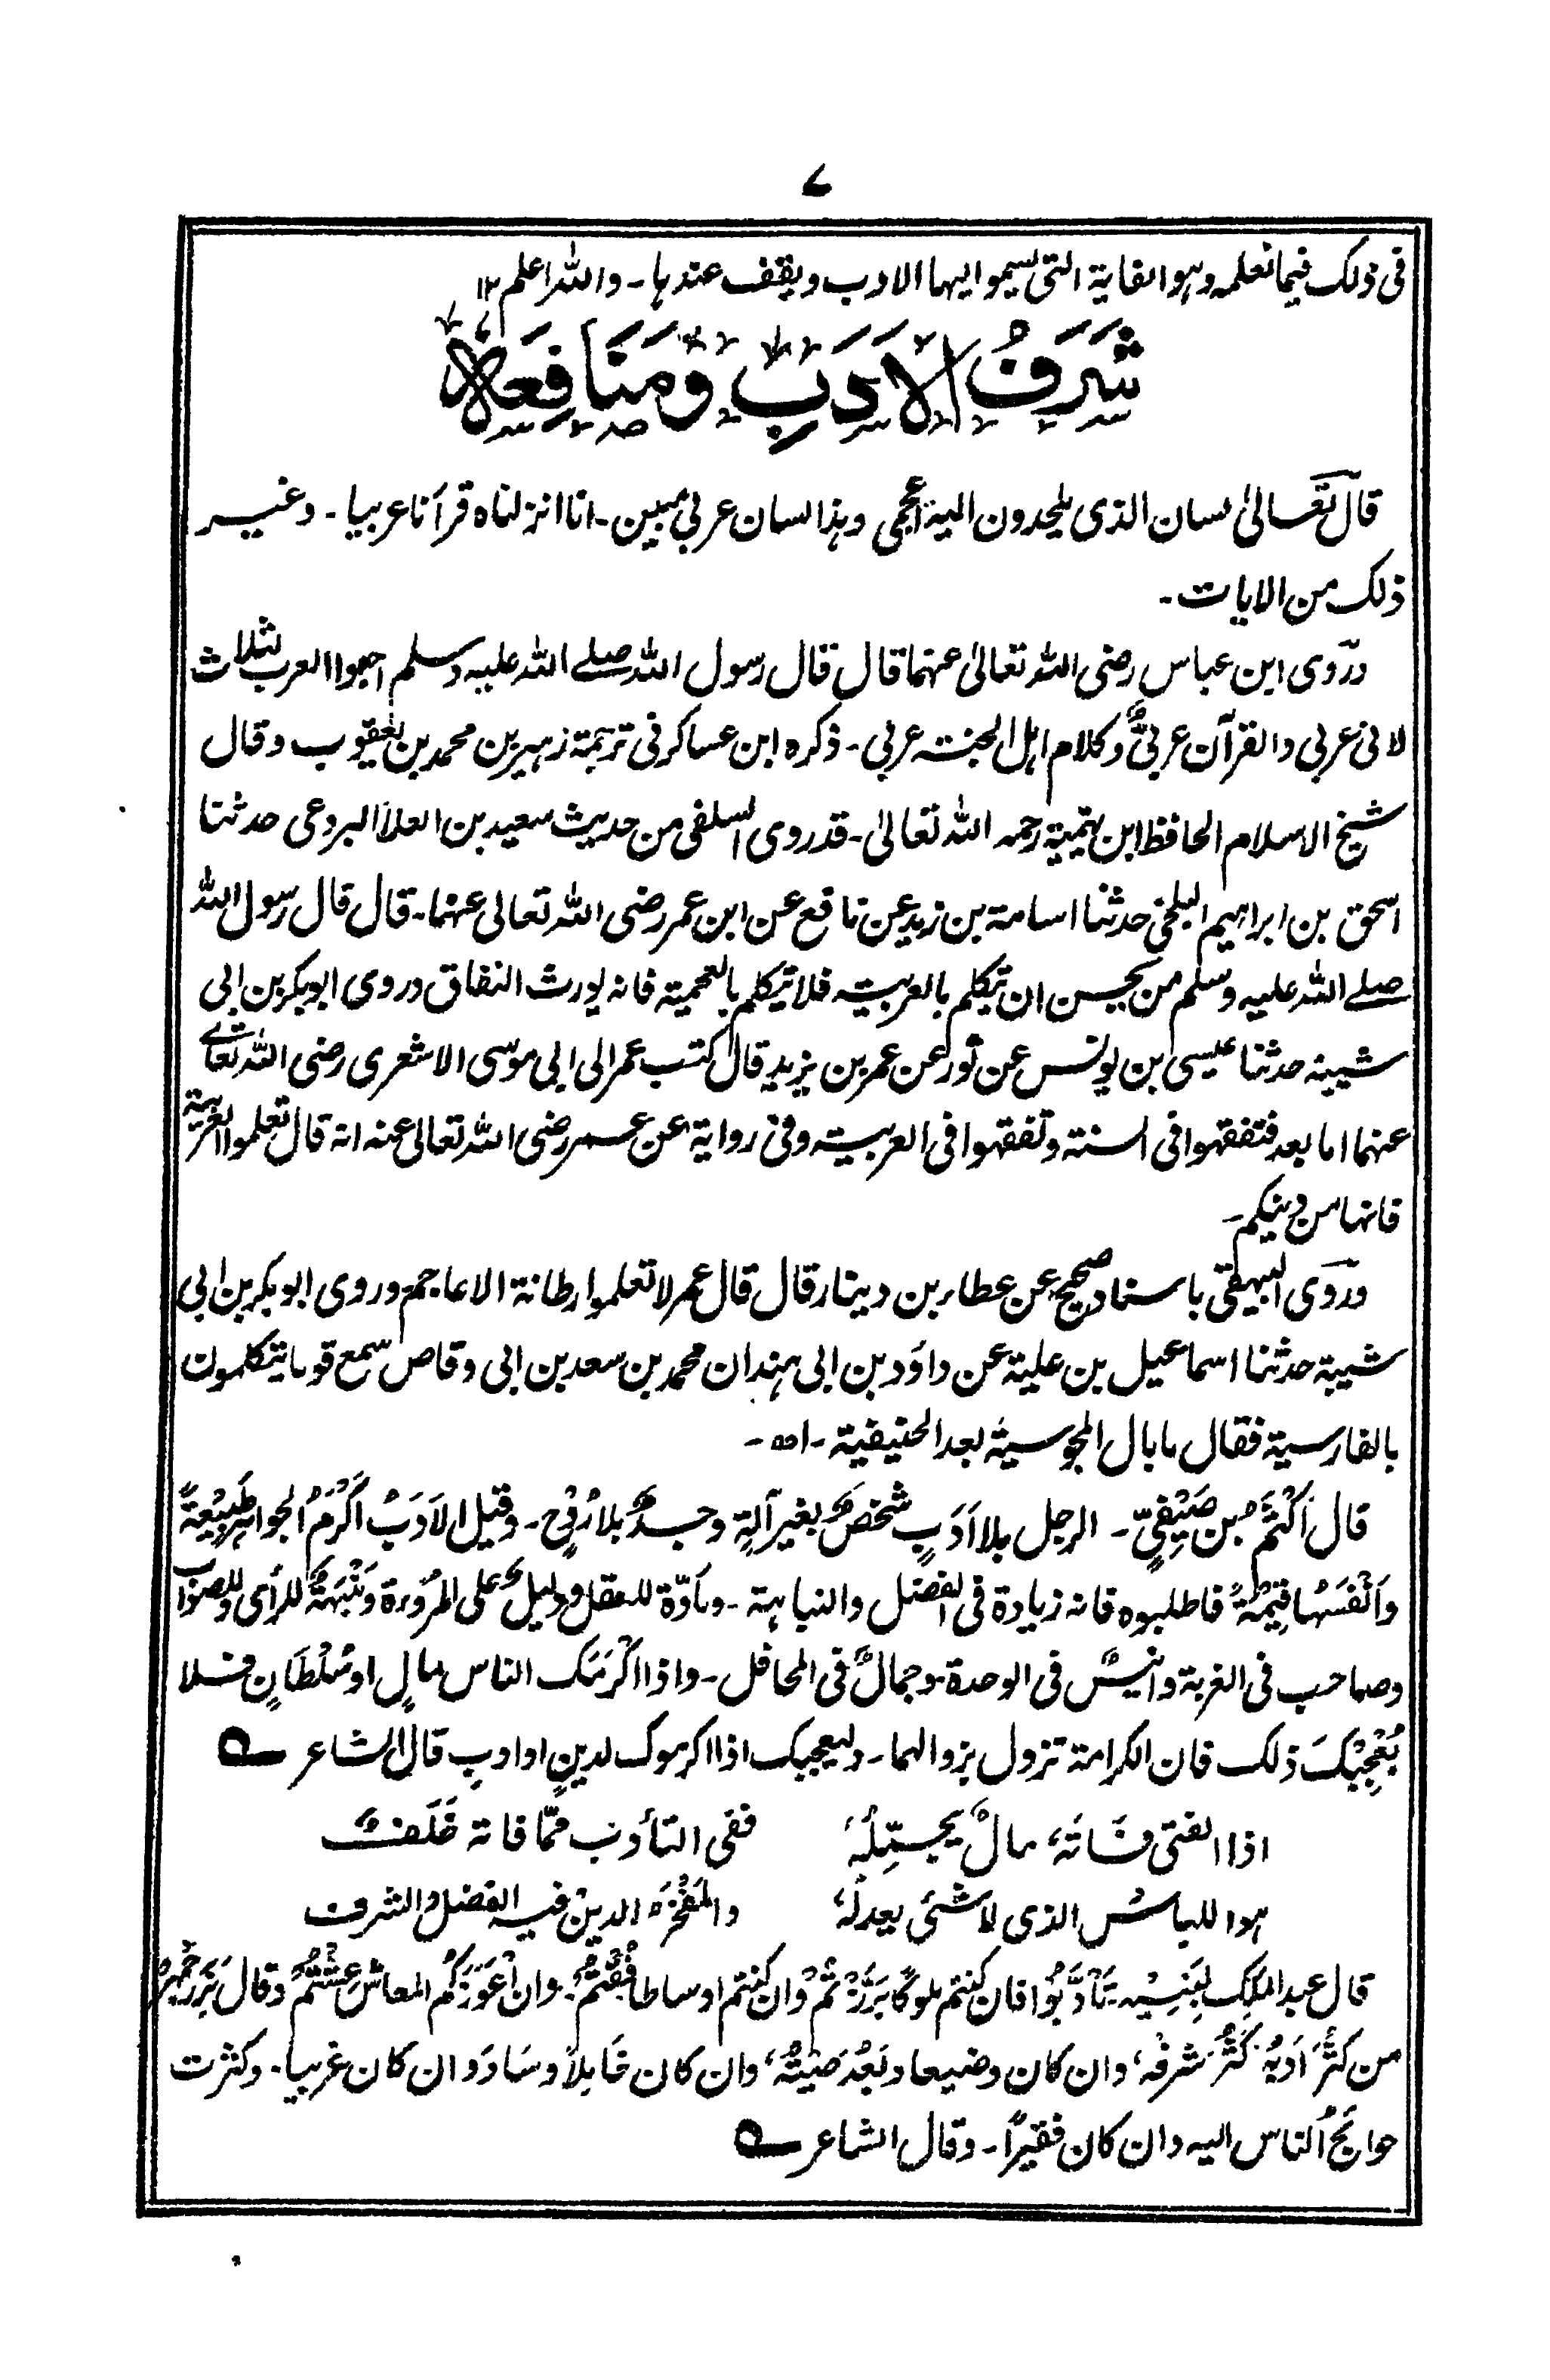 ۷
فى ذلك فيما نعلمه وهو الغاية التى يسموا ليها الادب ويقف عندها۔ والله اعلم ۱۲
شَرَفُ الاَدَبِ وَمَنَافِعُهٗ
قال تعالىٰ لسان الذى يلحدون اليه اعجمى وهذا لسان عربى مبين۔ انا انزلناه قرآنا عربيا۔ وغير
ذلك من الايات۔
وروى ابن عباس رضى الله تعالىٰ عنهما قال قال رسول الله صلے الله عليه وسلم احبوا العرب لثلاث
لانى عربى والقرآن عربىٌّ وكلام اهل الجنة عربى۔ ذكره ابن عساكر فى ترجمة زهير بن محمد بن يعقوب وقال
شيخ الاسلام الحافظ ابن تيمية رحمه الله تعالىٰ۔ قد روى السلفى من حديث سعيد بن العلاء البردعى حدثنا
اسحق بن ابراهيم البلخى حدثنا اسامة بن زيد عن نافع عن ابن عمر رضى الله تعالى عنهما۔ قال قال رسول الله
صلے الله عليه وسلم من يحسن ان يتكلم بالعربية فلا يتكلم بالعجمية فانه يورث النفاق وروى ابوبكر بن ابى
شيبة حدثنا عيسى بن يونس عن ثور عن عمر بن يزيد قال كتب عمر الى ابى موسى الاشعرى رضى الله تعالے
عنهما اما بعد فتفقهوا فى السنة وتفقهوا فى العربية وفى رواية عن عمر رضى الله تعالىٰ عنه انه قال تعلموا العربية
فانها من دينكم۔
وروى البيهقى باسناد صحيح عن عطاء بن دينار قال قال عمر لا تعلموا رطانة الاعاجم وروى ابوبكر بن ابى
شيبة حدثنا اسماعيل بن علية عن داود بن ابى هند ان محمد بن سعد بن ابى وقاص سمع قوما يتكلمون
بالفارسية فقال ما بال المجوسية بعد الحنيفية۔ اه۔
قال اَكْثَمُ بن صَيْفِىّ۔ الرجل بلا اَدَبٍ شخصٌ بغير آلةٍ وجسدٌ بلا رُوْحٍ۔ وقيل الاَدَبُ اَكْرَمُ الجواهر طَبِيْعَةً
وَاَنْفَسُهَا قِيْمَةً فاطلبوه فانه زيادة فى الفضل والنباهة۔ ومادّة للعقل ودليلٌ على المُرُوءة وَتَنْبَهَةٌ للرأى وللصواب
وصاحب فى الغربة وانيسٌ فى الوحدة۔ وجمالٌ فى المحافل۔ واذا اكْرَمَك الناس بمالٍ او سُلْطَانٍ فلا
يُعْجِبْكَ ذلك فان الكرامة تزول بزوالهما۔ وليعجبك اذا اكرموك لدينٍ او ادبٍ قال الشاعر
اذا الفتى فَاتَهٗ مالٌ يجمّلُهٗ ففى التأدب ممّا فاته خَلَفٌ
هو اللباسُ الذى لا شئى يعدلهٗ والمَفْخَرُ الدين فيه الفضل والشرف
قال عبد الملك لِبَنِيْه۔ تَاَدَّبُوْا فان كنتم ملوكًا بَرَّزْتُمْ وان كنتم اوساطا فُقْتُمْ۔ وان اَعْوَزَكُم المعاش عِشْتُمْ وقال بَزَرْجُمِهْرُ
من كثُرَ ادبُهٗ كَثُرَ شرفُهٗ وان كان وضيعا وبَعُدَ صِيْتُهٗ وان كان خَامِلاً وسَادَ وان كان غريبا۔ وكثرت
حوائجُ الناس اليه وان كان فقيرًا۔ وقال الشاعر